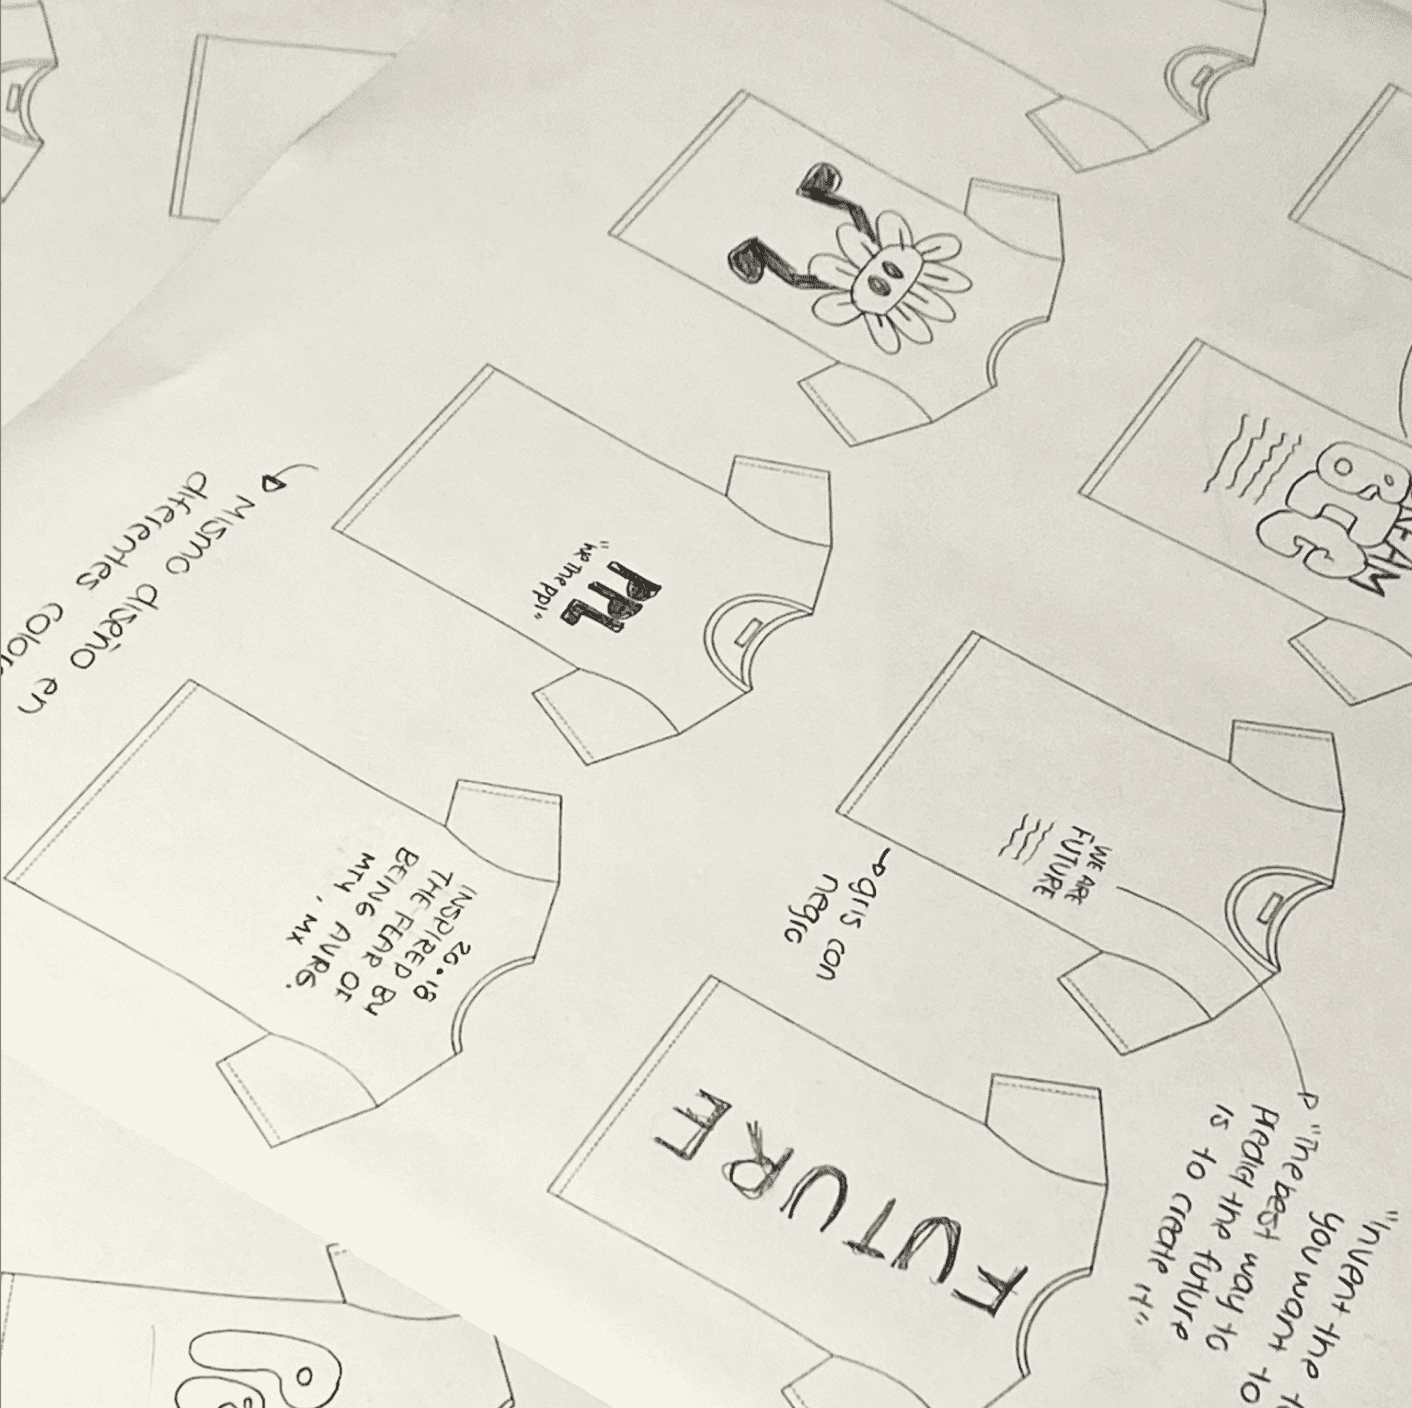 Mismo diseño en
diferentes
PPL
"we the ppl"
20.18
INSPIRED BY
THE FEAR OF
BEING AVRG.
MTY, MX
WE ARE
FUTURE
gris con
negro
FUTURE
"The best way to
predict the future
is to create it"
"Invent the
you want to